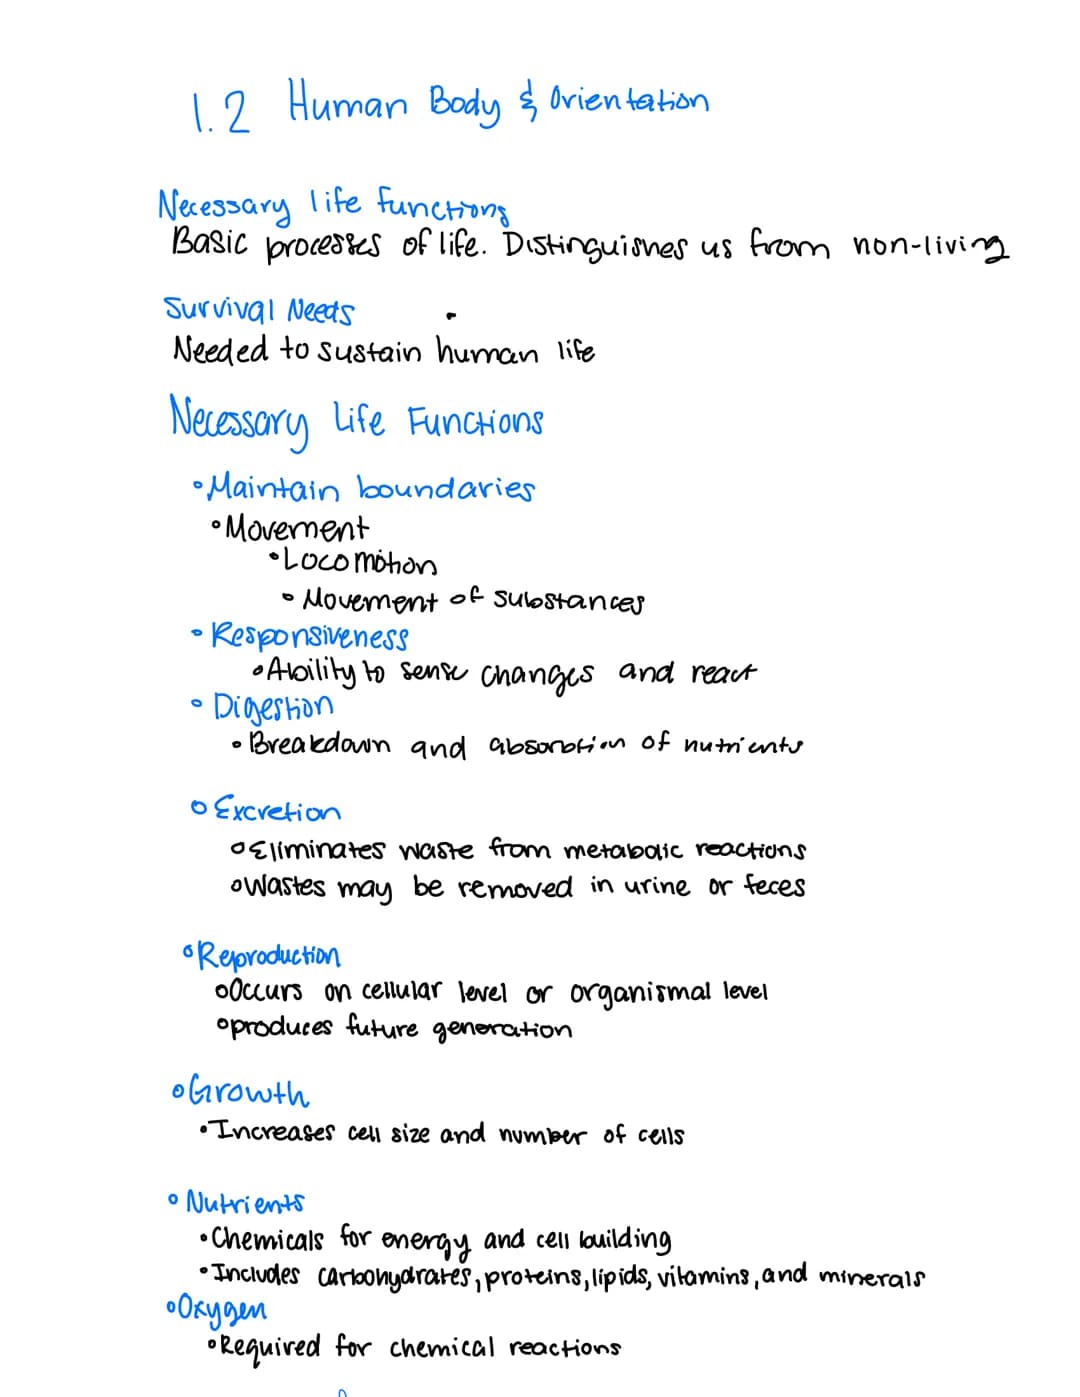 1.2 Human Body & Orientation
Necessary life functions
Basic processes of life. Distinguishes us from non-living
Survival Needs
Needed to sustain human life
Necessary Life Functions
•Maintain boundaries
•Movement
•Locomotion
•Movement of substances
•Responsiveness
•Ability to sense changes and react
•Digestion
•Breakdown and absorbtion of nutrients
•Excretion
•Eliminates waste from metabolic reactions
•Wastes may be removed in urine or feces
•Reproduction
•Occurs on cellular level or organismal level
•produces future generation
•Growth
•Increases cell size and number of cells
•Nutrients
•Chemicals for energy and cell building
•Includes carbohydrates, proteins, lipids, vitamins, and minerals
•Oxygen
•Required for chemical reactions